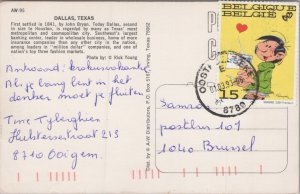 AW-95
DALLAS, TEXAS
First settled in 1841, by John Bryan. Today Dallas, second
in size to Houston, is regarded by many as Texas' most
metropolitan and cosmopolitan city. Southwest's largest
banking center, leader in wholesale business, home of more
insurance companies than any other city in the nation,
among leaders in "million dollar" companies, and one of
the nation's top fashion markets.
Photo by: © Rick Young
Antwoord: krokusvakantie
Als je bang bent in het
donker moet je fluiten
Tine Tyberghien
Hulstersestraat 213
8710 Ooigem
BELGIQUE
BELGIË
15
8780
Samson
postbus 101
1040 Brussel